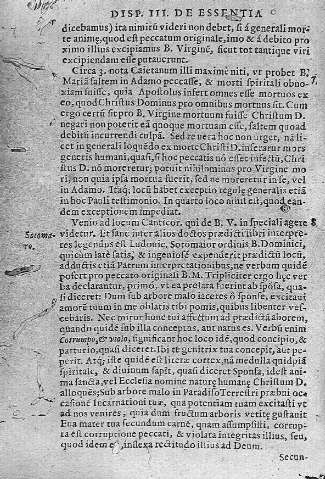 DISP. III. DE ESSENTIA
dicebamus) ita nimirū videri non debet, si à generali mor-
te animę, quod est peccatum originale, imo & à debito pro
ximo illius excipiamus B. Virginē, sicut tot tantique viri
excipiendam esse putauerunt.
Circa 3. nota Caietanum illi maximè niti, vt probet B. 7.
Mariā saltem in Adamo peccasse, & morti spiritali obno-
xiam fuisse, quia Apostolus infert omnes esse mortuos ex
eo, quod Christus Dominus pro omnibus mortuus sit. Cum
ergo certū sit pro B. Virgine mortuum fuisse Christum D.
negari non poterit eā quoque mortuam esse, saltem quoad
debitū incurrendi culpā. Sed reuera hoc non vrget, nā li-
cet in generali loquēdo ex morte Christi D. inferatur mors
generis humani, quasi, si hoc peccatis nō esset infectū, Chri-
stus D. nō moreretur; potuit nihilominus pro Virgine mo
ri, non quia ipsa mortua fuerit, sed ne moreretur in se, vel
in Adamo. Itaq; locū habet exceptio regulę generalis etiā
in hoc Pauli testimonio. In quarto loco nihil est, quod ean-
dem exceptionem impediat.
Venio ad locum Canticor. qui de B. V. in speciali agere 8
videtur. Et sanè inter alios doctos prædicti libri interpre-
tes legendus est Ludouic. Sotomaior ordinis B. Dominici,
qui cùm latè satis, & ingeniosè expenderit prædictū locū,
adductis etiā Patrum interpretationibus, ne verbum quidē
posert pro peccato originali B. M. Tripliciter ergo hæc ver
ba declarantur, primò, vt ea prolata fuerint ab sposa, qua-
si diceret: Dum sub arbore malo iaceres ô sponse, excitaui
amorē tuum in me oblatis tibi pomis, quibus libenter vesc-
cebaris. Nec mirum hunc tui affectum ad prædictā arborem,
quando quidē sub illa conceptus, aut natus es. Verbū enim
Corrumpo, & violo, significant hoc loco idē, quod concipio, &
parturio, quasi diceret: Ibi te genitrix tua concepit, aut pe-
perit. Atq; iste quidē est licteræ cortex, nā medulla quidpiā
spiritale, & diuinum sapit, quasi diceret Sponsa, idest ani-
ma sancta, vel Ecclesia nomine naturę humanę Christum D.
alloquēs; Sub arbore malo in Paradiso Terrestri præbui oc
casionē Incarnationi tuæ, qua potentiam tuam excitasti vt
ad nos venires, quia dum fructum arboris vetitę gustauit
Eua mater tua secundum carnē, quam assumpsisti, corrup-
ta est corruptione peccati, & violata integritas illius, seu,
quod idem est, inflexa rectitudo illius ad Deum.
Secun-